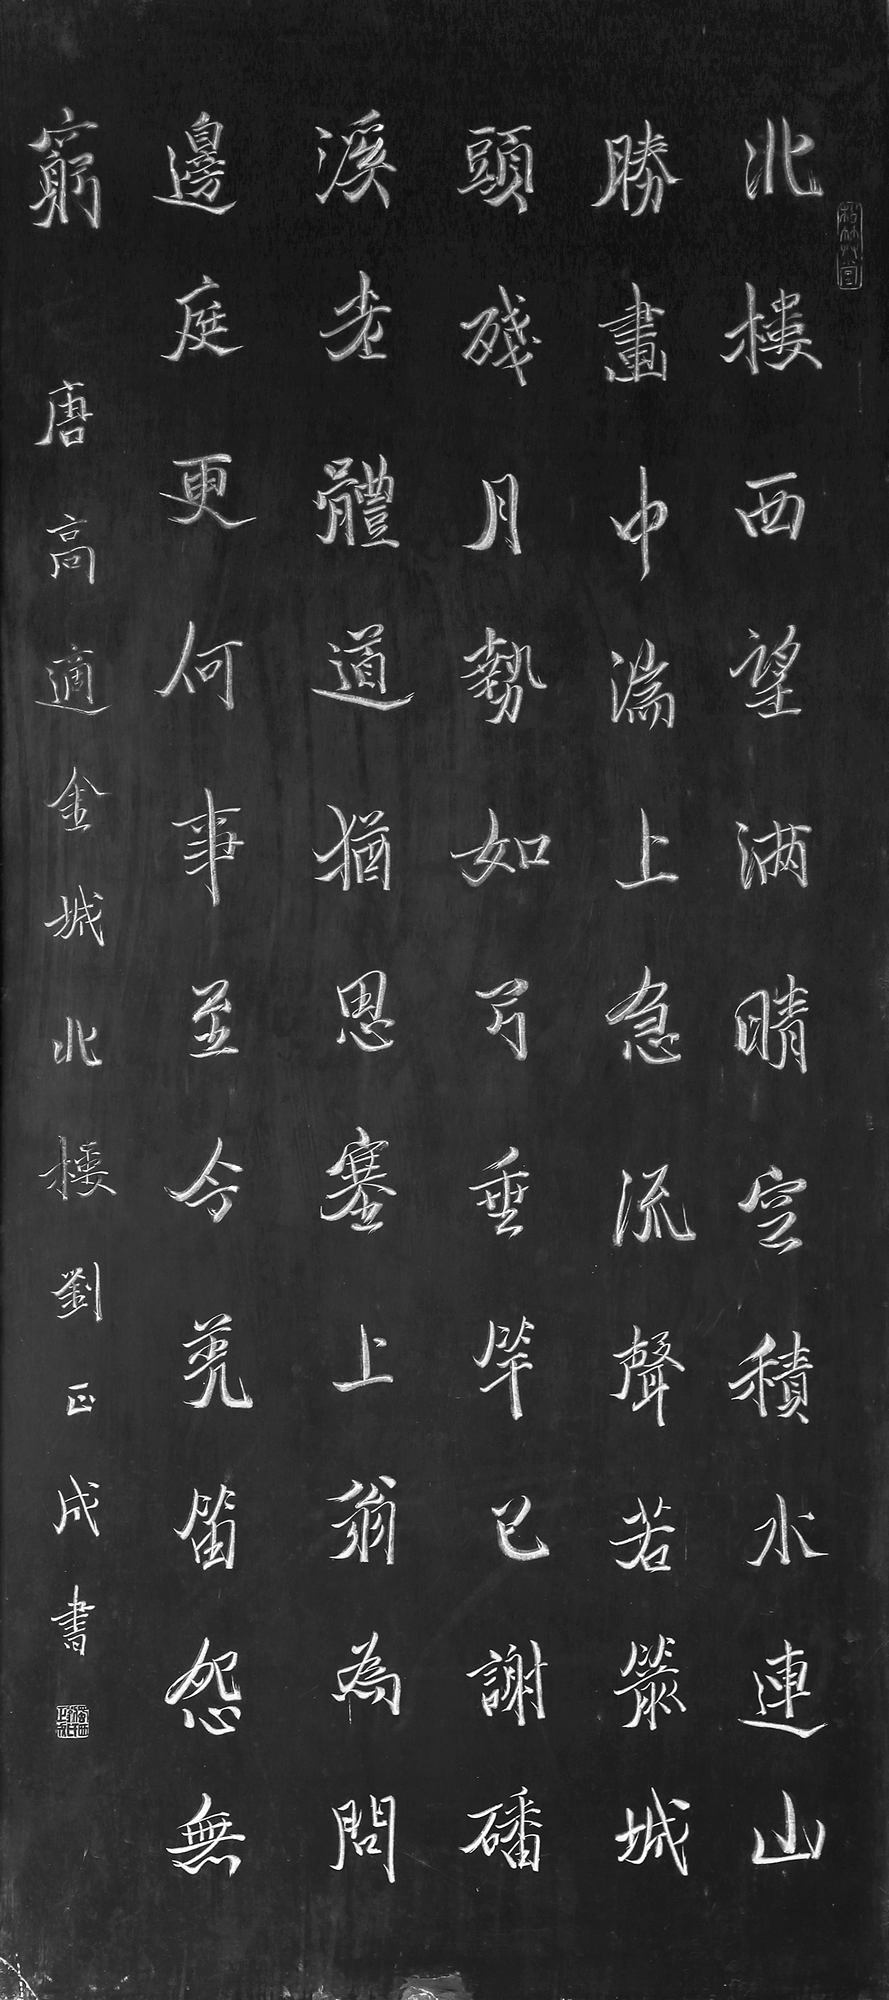 北樓西望滿晴空積水連山
勝畫中湍上急流聲若箭城
頭殘月勢如弓垂竿已謝磻
溪老體道猶思塞上翁為問
邊庭更何事至今羌笛怨無
窮 唐高適金城北樓劉正成書